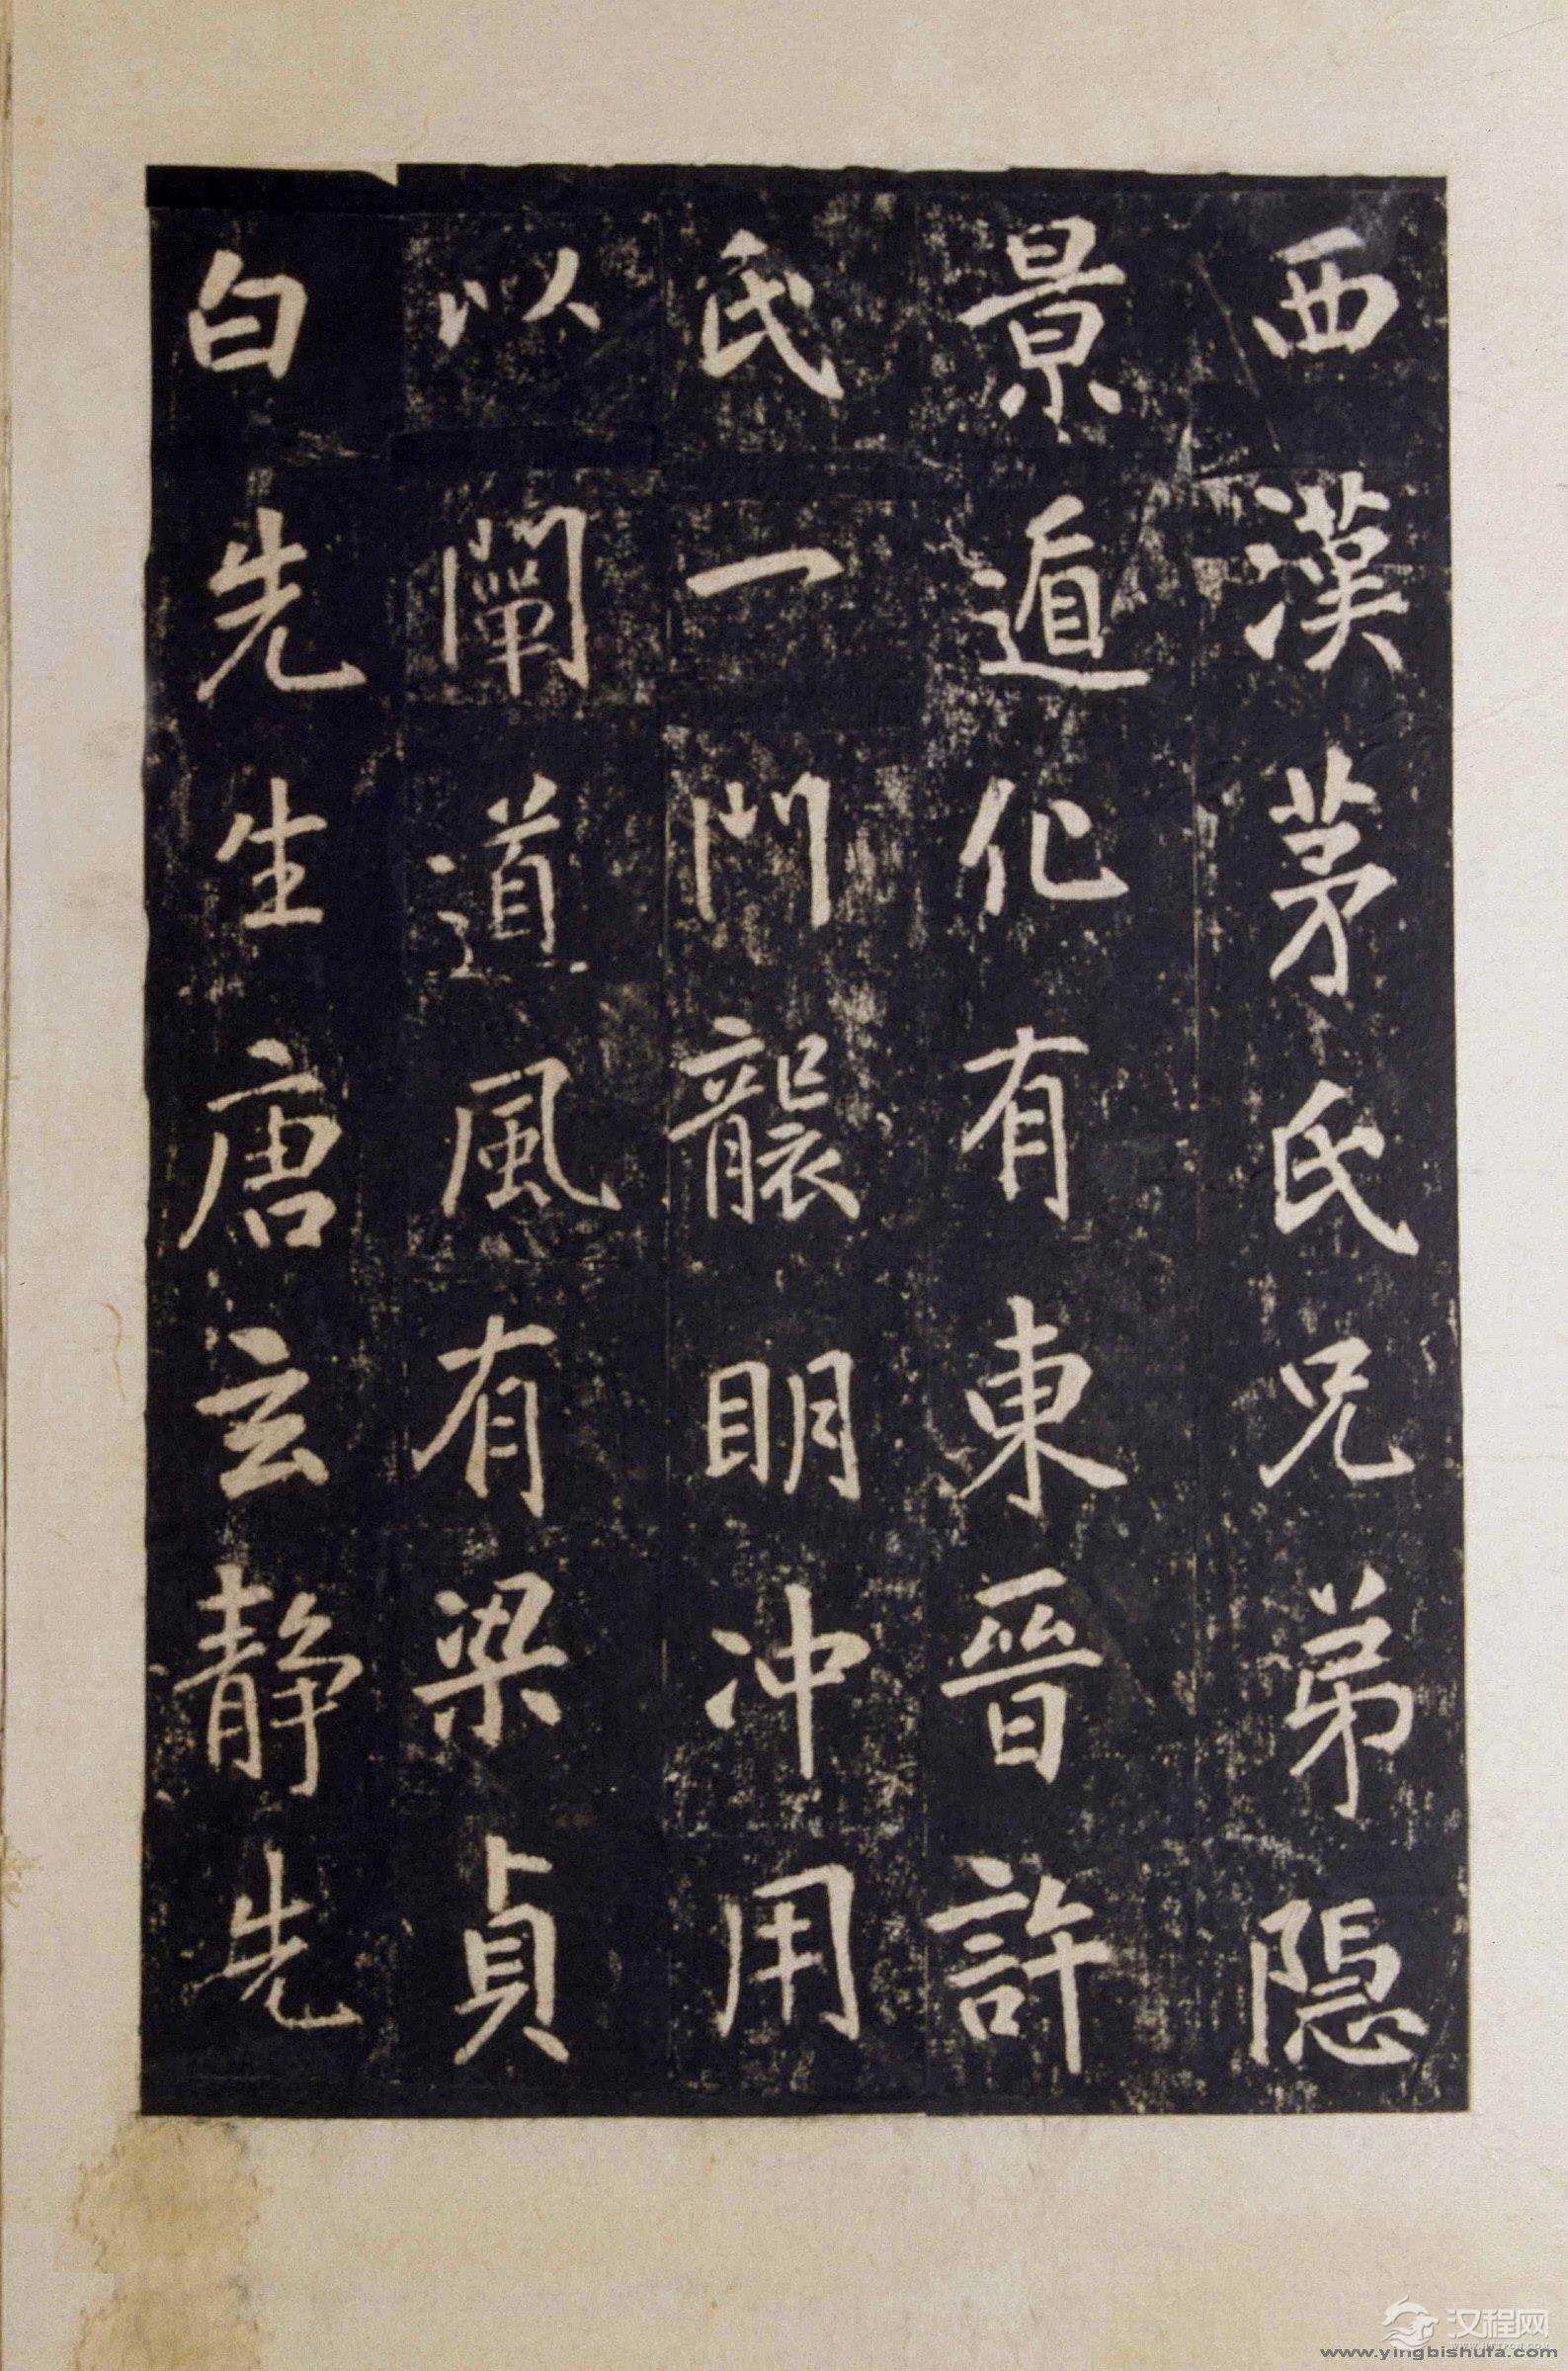 西漢茅氏兄弟隱
景遁化有東晉許
氏一門襲明冲用
以闡道風有梁貞
白先生唐玄静先
汉程网
WWW.HTTPCN.COM
www.yingbishufa.com